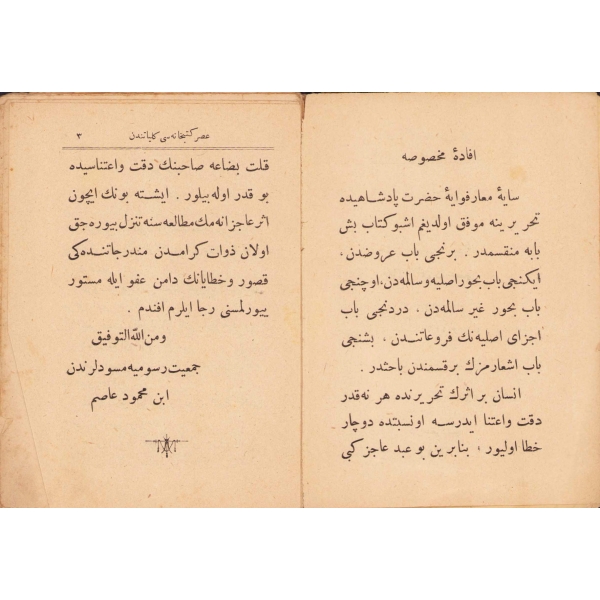 افادهٔ مخصوصه
سایهٔ معارفوایهٔ حضرت پادشاهیده
تحریرینه موفق اولدیغم اشبو کتاب بش
بابه منقسمدر . برنجی باب عروضدن ،
ایکنجی باب بحور اصلیه و سالمه‌دن ، اوچنجی
باب بحور غیر سالمه‌دن . دردنجی باب
اجزای اصلیه‌نك فروعاتندن ، بشنجی
باب اشعارمزك بر قسمندن باحثدر .
انسان بر اثرك تحریرنده هر نه قدر
دقت واعتنا ایدرسه اونسبتده دوچار
خطا اولیور ؛ بنابرین بو عبد عاجز کبی
عصر کتبخانه‌سی کلیاتندن ٣
قلت بضاعه صاحبنك دقت واعتناسیده
بو قدر اوله بیلور . ایشته بونك ایچون
اثر عاجزانه‌مك مطالعه‌سنه تنزل بیوره‌جق
اولان ذوات کرامدن مندرجاتنده‌کی
قصور وخطایانك دامن عفو ایله مستور
بیورلمسنی رجا ایلرم افندم .
ومن الله التوفیق
جمعیت رسومیه مسودلرندن
ابن محمود عاصم